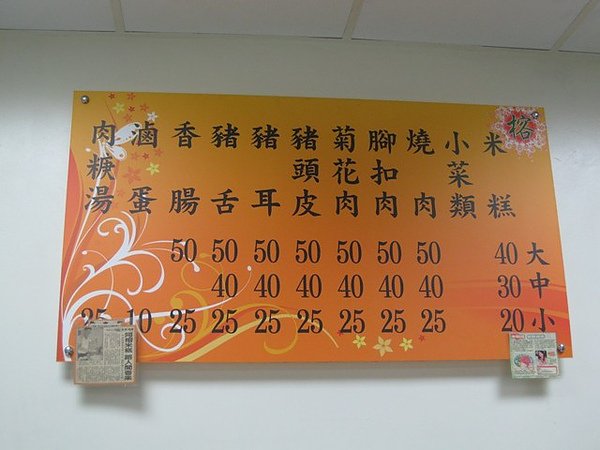 榕
米糕
小菜類
燒肉
腳扣肉
菊花肉
豬頭皮
豬耳
豬舌
香腸
滷蛋
肉粿湯
50 50 50 50 50 50 50 40 大
40 40 40 40 40 40 30 中
25 10 25 25 25 25 25 25 25 20 小